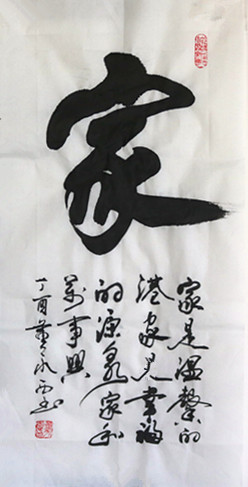 家
家是温馨的
港家是幸福
的源泉家和
万事兴
丁酉董永西书